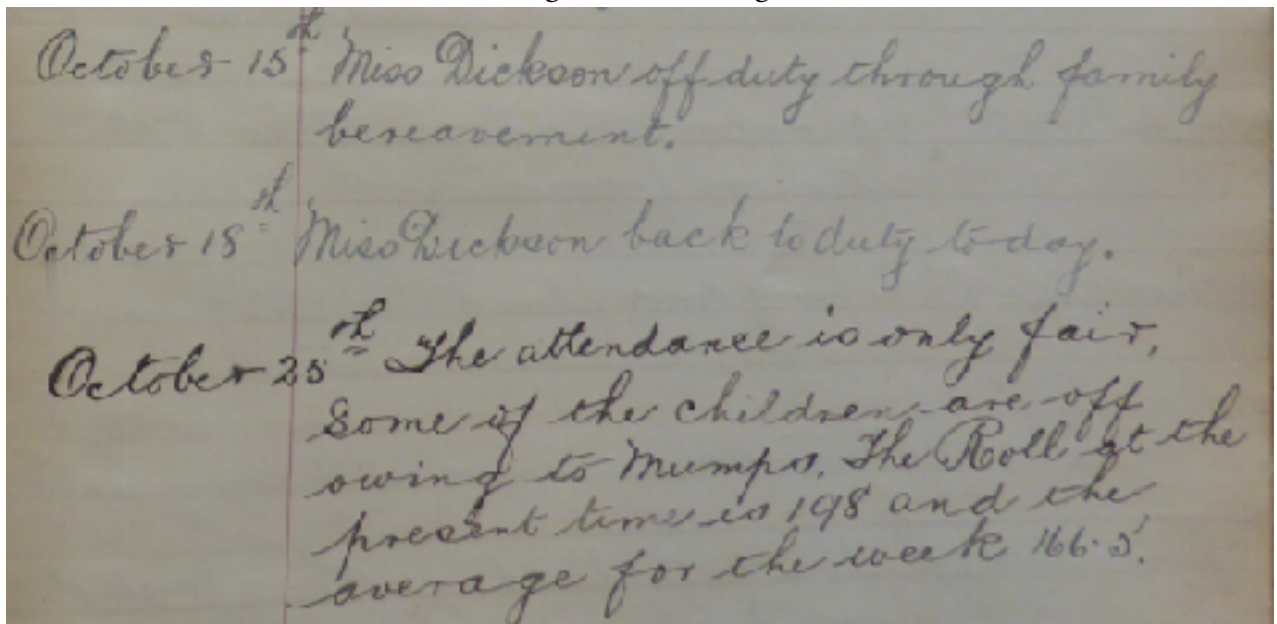 October 15th Miss Dickson off duty through family
bereavement.
October 18th Miss Dickson back to duty to-day.
October 25th The attendance is only fair,
Some of the children are off
owing to Mumps. The Roll at the
present time is 198 and the
average for the week 166.5.